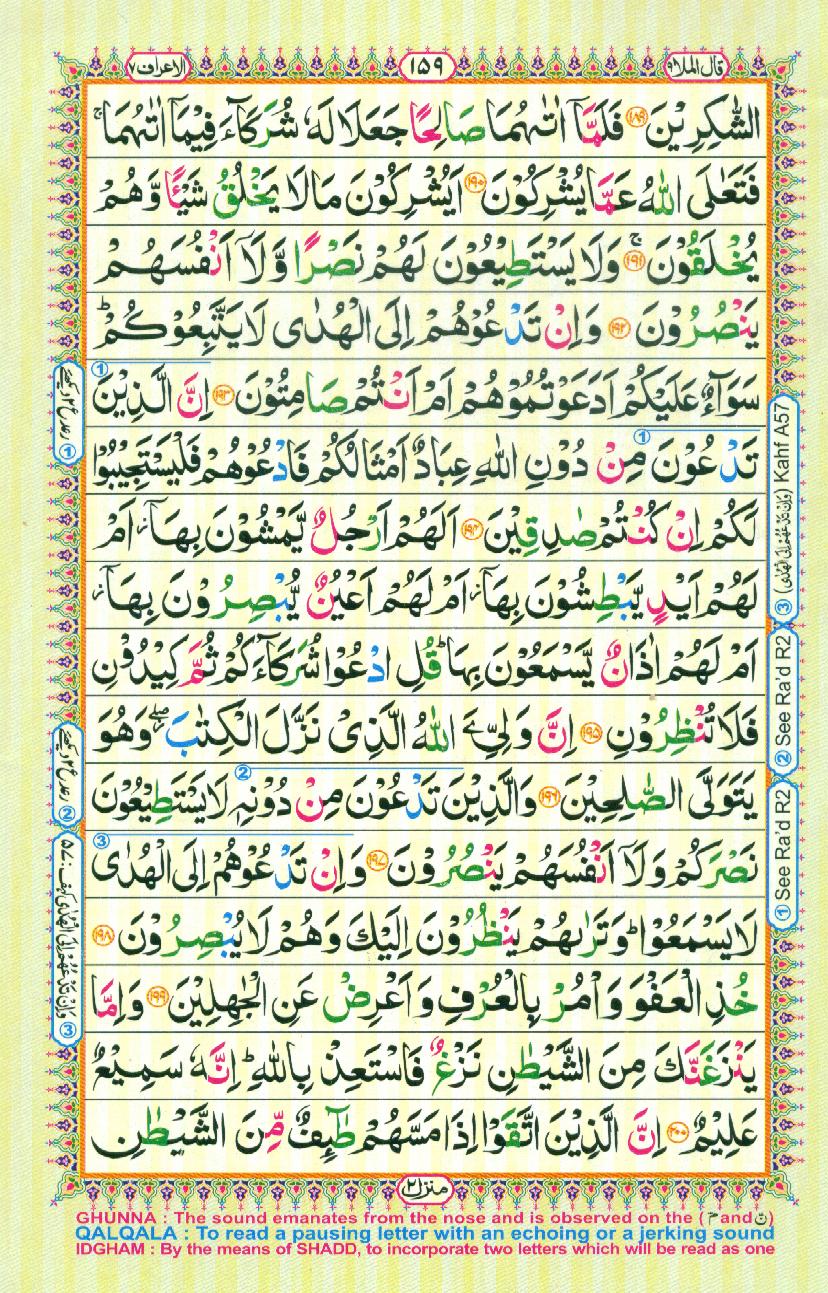 قال الملا ٩
١٥٩
الاعراف ٧
الشّٰكِرِيْنَ ﴿١٨٩﴾ فَلَمَّاۤ اٰتٰىهُمَا صَالِحًا جَعَلَا لَهٗ شُرَكَآءَ فِيْمَاۤ اٰتٰىهُمَا ۚ
فَتَعٰلَى اللّٰهُ عَمَّا يُشْرِكُوْنَ ﴿١٩٠﴾ اَيُشْرِكُوْنَ مَا لَا يَخْلُقُ شَيْـًٔا وَّهُمْ
يُخْلَقُوْنَ ﴿١٩١﴾ ۚ وَلَا يَسْتَطِيْعُوْنَ لَهُمْ نَصْرًا وَّلَاۤ اَنْفُسَهُمْ
يَنْصُرُوْنَ ﴿١٩٢﴾ وَاِنْ تَدْعُوْهُمْ اِلَى الْهُدٰى لَا يَتَّبِعُوْكُمْ ؕ
سَوَآءٌ عَلَيْكُمْ اَدَعَوْتُمُوْهُمْ اَمْ اَنْتُمْ صَامِتُوْنَ ﴿١٩٣﴾ اِنَّ الَّذِيْنَ ①
تَدْعُوْنَ مِنْ ① دُوْنِ اللّٰهِ عِبَادٌ اَمْثَالُكُمْ فَادْعُوْهُمْ فَلْيَسْتَجِيْبُوْا
لَكُمْ اِنْ كُنْتُمْ صٰدِقِيْنَ ﴿١٩٤﴾ اَلَهُمْ اَرْجُلٌ يَّمْشُوْنَ بِهَاۤ ؗ اَمْ
لَهُمْ اَيْدٍ يَّبْطِشُوْنَ بِهَاۤ ؗ اَمْ لَهُمْ اَعْيُنٌ يُّبْصِرُوْنَ بِهَاۤ ؗ
اَمْ لَهُمْ اٰذَانٌ يَّسْمَعُوْنَ بِهَا ؕ قُلِ ادْعُوْا شُرَكَآءَكُمْ ثُمَّ كِيْدُوْنِ
فَلَا تُنْظِرُوْنِ ﴿١٩٥﴾ اِنَّ وَلِيِّ َۧ اللّٰهُ الَّذِىْ نَزَّلَ الْكِتٰبَ ۖ وَهُوَ
يَتَوَلَّى الصّٰلِحِيْنَ ﴿١٩٦﴾ وَالَّذِيْنَ تَدْعُوْنَ مِنْ ② دُوْنِهٖ لَا يَسْتَطِيْعُوْنَ
نَصْرَكُمْ وَلَاۤ اَنْفُسَهُمْ يَنْصُرُوْنَ ﴿١٩٧﴾ وَاِنْ تَدْعُوْهُمْ اِلَى الْهُدٰى ③
لَا يَسْمَعُوْا ؕ وَتَرٰىهُمْ يَنْظُرُوْنَ اِلَيْكَ وَهُمْ لَا يُبْصِرُوْنَ ﴿١٩٨﴾
خُذِ الْعَفْوَ وَاْمُرْ بِالْعُرْفِ وَاَعْرِضْ عَنِ الْجٰهِلِيْنَ ﴿١٩٩﴾ وَاِمَّا
يَنْزَغَنَّكَ مِنَ الشَّيْطٰنِ نَزْغٌ فَاسْتَعِذْ بِاللّٰهِ ؕ اِنَّهٗ سَمِيْعٌ
عَلِيْمٌ ﴿٢٠٠﴾ اِنَّ الَّذِيْنَ اتَّقَوْا اِذَا مَسَّهُمْ طٰٓئِفٌ مِّنَ الشَّيْطٰنِ
① See Ra'd R2
② See Ra'd R2
③ (وَاِنْ تَدْعُهُمْ اِلَى الْهُدٰى) Kahf A57
رعد ع ۲ دیکھئے ①
رعد ع ۲ دیکھئے ②
وَاِنْ تَدْعُهُمْ اِلَى الْهُدٰى کہف : ۵۷ ③
منزل ٢
GHUNNA : The sound emanates from the nose and is observed on the ( مّ and نّ )
QALQALA : To read a pausing letter with an echoing or a jerking sound
IDGHAM : By the means of SHADD, to incorporate two letters which will be read as one